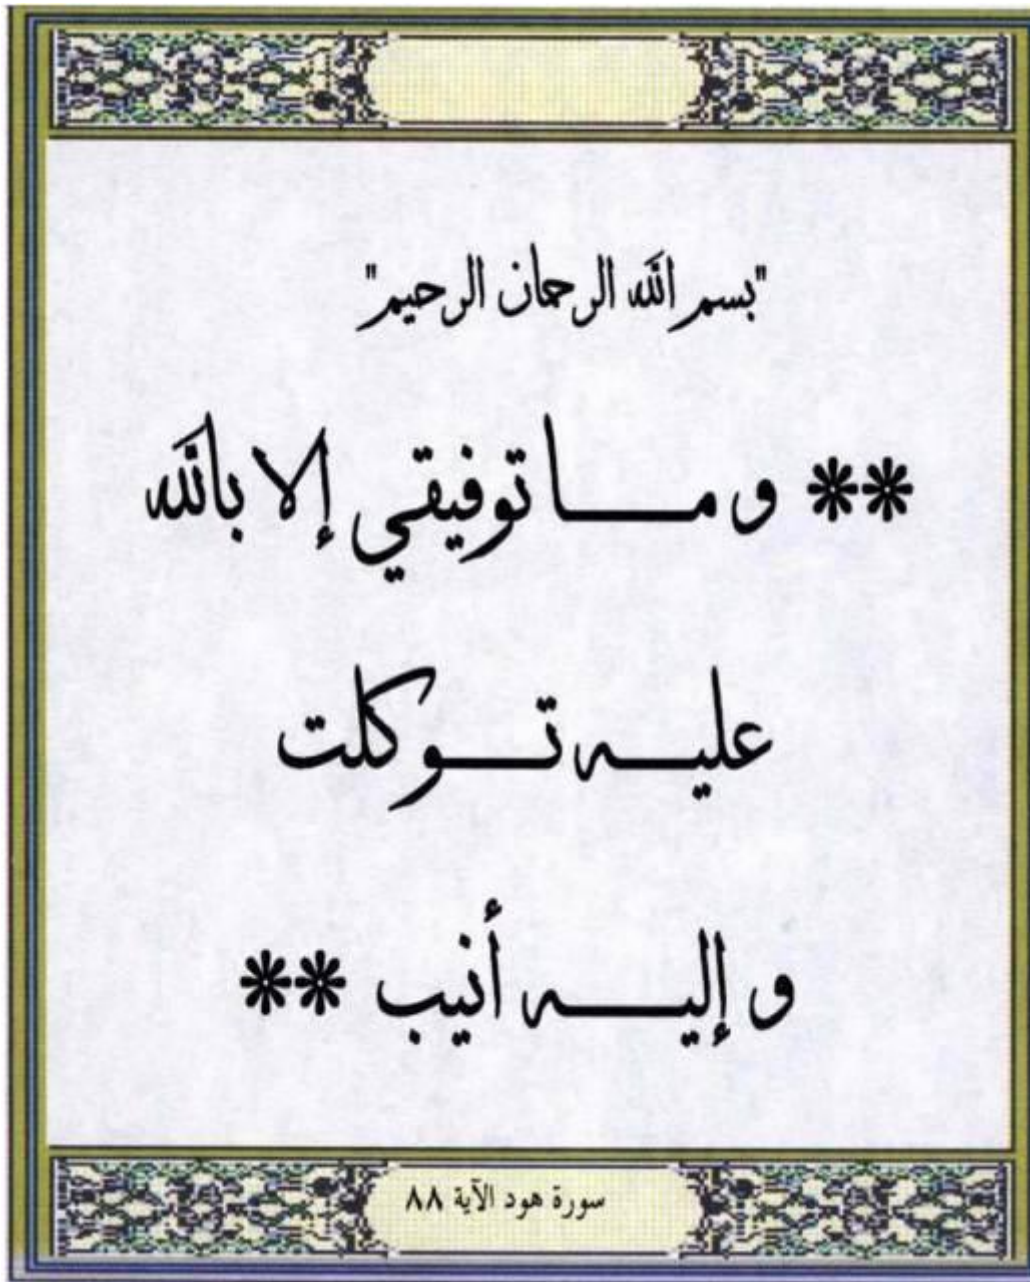 "بسم الله الرحمان الرحيم"
** و ما توفيقي إلا بالله
عليه توكلت
و إليه أنيب **
سورة هود الآية ٨٨